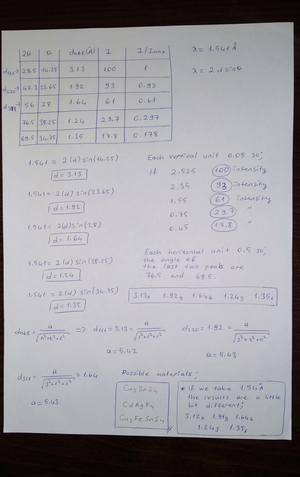 2θ θ dhkl(Å) I I/Imax
d111→ 28.5 14.25 3.13 100 1
d220→ 47.3 23.65 1.92 93 0.93
d311→ 56 28 1.64 61 0.61
76.5 38.25 1.24 29.7 0.297
69.5 34.75 1.35 17.8 0.178
λ = 1.541 Å
λ = 2 d sinθ
1.541 = 2(d) sin(14.25)
d = 3.13
1.541 = 2(d) sin(23.65)
d = 1.92
1.541 = 2(d) sin(28)
d = 1.64
1.541 = 2(d) sin(38.25)
d = 1.24
1.541 = 2(d) sin(34.75)
d = 1.35
Each vertical unit 0.05 so;
if 2.525 100 intensity
2.35 93 intensity
1.55 61 intensity
0.75 29.7 "
0.45 17.8 "
Each horizontal unit 0.5 so;
the angle of
the last two peaks are
76.5 and 69.5.
3.13x 1.929 1.646 1.243 1.35x
dhkl = a / √h²+k²+l² ⇒ d111 = 3.13 = a / √1²+1²+1²
a = 5.42
d220 = 1.92 = a / √2²+2²+0²
a = 5.43
d311 = a / √3²+1²+1² = 1.64
a = 5.43
Possible materials;
Cu2SnS4
Cu2FeSnS4
* if we take 1.54 Å
the results are a little
bit different;
3.12x 1.919 1.646
1.243 1.35x